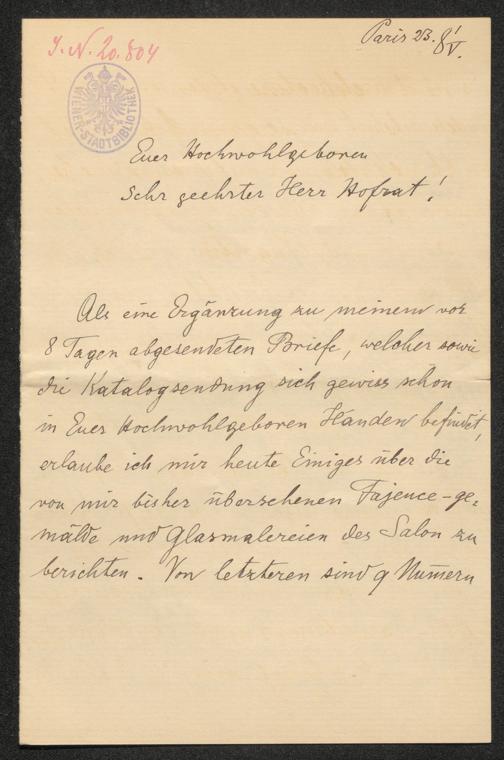 J. N. 20.804
Paris 23. 8/V.
WIENER-STADTBIBLIOTHEK
Euer Hochwohlgeboren
Sehr geehrter Herr Hofrat!
Als eine Ergänzung zu meinem vor
8 Tagen abgesendeten Briefe, welcher sowie
die Katalogsendung sich gewiss schon
in Euer Hochwohlgeboren Handen befindet,
erlaube ich mir heute Einiges über die
von mir bisher übersehenen Fajence-ge=
mälde und Glasmalereien des Salon zu
berichten. Von letzteren sind 9 Num̅ern